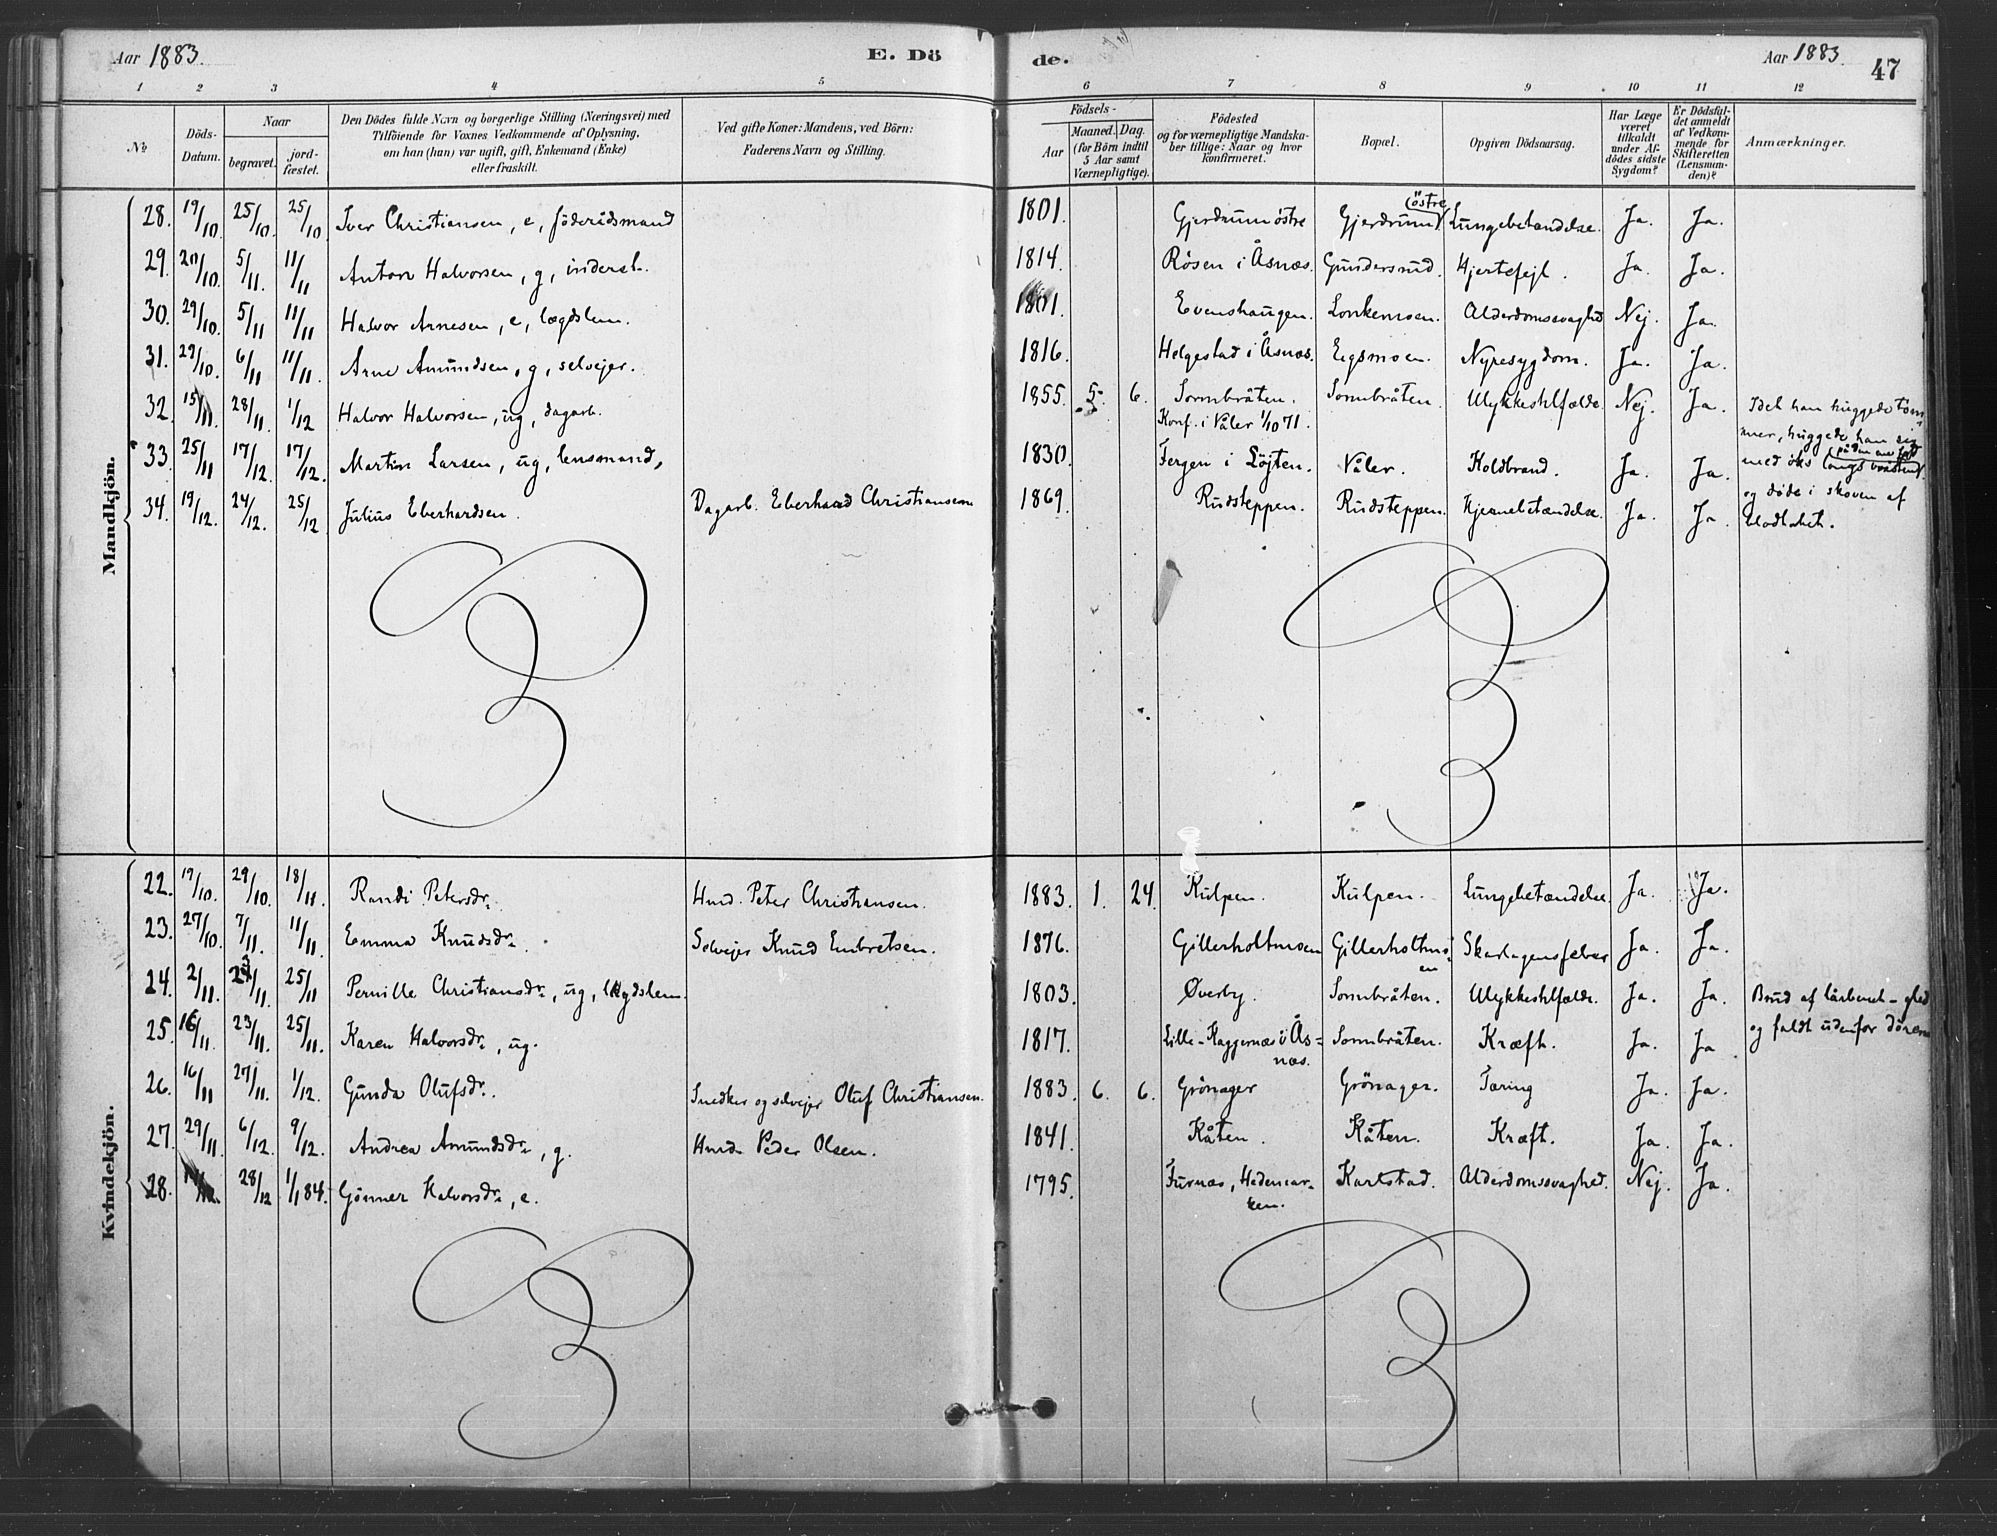 Aar 1883. E. Dö de. Aar 1883. 47
1 2 3 4 5 6 7 8 9 10 11 12
No
Döds-Datum.
Naar
begravet.
jord-fæstet.
Den Dödes fulde Navn og borgerlige Stilling (Næringsvei) med
Tilföiende for Voxnes Vedkommende af Oplysning,
om han (hun) var ugift, gift, Enkemand (Enke)
eller fraskilt.
Ved gifte Koner: Mandens, ved Börn:
Faderens Navn og Stilling.
Födsels-
Aar
Maaned. Dag.
(for Börn indtil
5 Aar samt
Værnepligtige).
Födested
og for værnepligtige Mandska-
ber tillige: Naar og hvor
konfirmeret.
Bopæl.
Opgiven Dödsaarsag.
Har Læge
været
tilkaldt
under Af-
dödes sidste
Sygdom?
Er Dödsfal-
det anmeldt
af Vedkom-
mende for
Skifteretten
(Lensman-
den)?
Anmærkninger.
Mandkjön.
28. 19/10. 25/10. 25/10. Iver Christiansen, e, föderådsmand 1801. Gjerdrum östre Gjerdrum östre Lungebetændelse. Ja. Ja.
29. 20/10. 5/11. 11/11 Anton Halvorsen, g, inderst. 1814. Rösen i Åsnæs. Gundersrud. Hjertefejl. Ja. Ja.
30. 29/10. 5/11 11/11 Halvor Arnesen, e, lægdslem. 1801. Evenshaugen. Lonkemoen. Alderdomssvaghed Nej. Ja.
31. 29/10. 6/11 11/11. Arne Amundsen, g, selvejer. 1816. Helgestad i Åsnæs. Egsmoen. Nyresygdom. Ja. Ja.
32. 15/11. 28/11. 1/12 Halvor Halvorsen, ug, dagarb. 1855. 5. 6. Sormbråten. Sormbråten. Ulykkestilfælde. Nej. Ja. Idet han huggede töm-
Konf. i Våler 1/10 71. mer, huggede han sig
33. 25/11 17/12. 17/12. Martin Larsen, ug, lensmand, 1830. Fergen i Löjten. Våler. Koldbrand. Ja. Ja. med öks
34. 19/12. 24/12. 25/12 Julius Eberhardsen. Dagarb. Eberhard Christiansen 1869. Rudsteppen. Rudsteppen. Hjernebetændelse. Ja. Ja. og döde i skoven af
blodtabet.
Kvindekjön.
22. 19/10. 29/10. 18/11. Randi Petersdr. Hmd. Peter Christiansen. 1883. 1. 24. Kulpen. Kulpen. Lungebetændelse. Ja. Ja.
23. 27/10. 7/11. 11/11. Emma Knudsdr. Selvejer Knud Embretsen. 1876. Gillerholtmoen Gillerholtmo-
en Skarlagensfeber Ja. Ja.
24. 2/11. 11. 25/11 Pernille Christiansdr., ug, lægdslem. 1803. Øverby. Sormbråten. Ulykkestilfælde. Ja. Ja. Brud af lårbenet - gled
25. 16/11. 23/11. 25/11. Karen Halvorsdr., ug. 1817. Lille-Kaggernæs i Ås-
næs. Sormbråten. Kræft. Ja. Ja og faldt udenfor dören
26. 16/11 27/11. 1/12. Gunda Olufsdr. Snedker og selvejer Oluf Christiansen. 1883. 6. 6. Grönager Grönager. Tæring Ja. Ja.
27. 29/11. 6/12. 9/12. Andrea Amundsdr., g. Hmd. Peder Olsen. 1841. Kåten. Kåten. Kræft. Ja. Ja.
28. 28/12 1/1 84. Gönner Halvorsdr., e. 1795. Furnæs, Hedemar-
ken. Karlstad. Alderdomssvaghed. Nej. Ja.